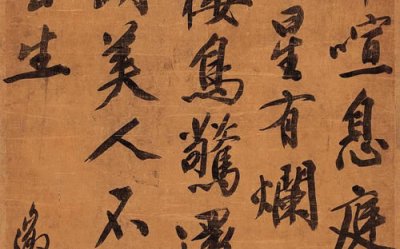 喧息庭
星有爛
棲鳥驚
美人不
生